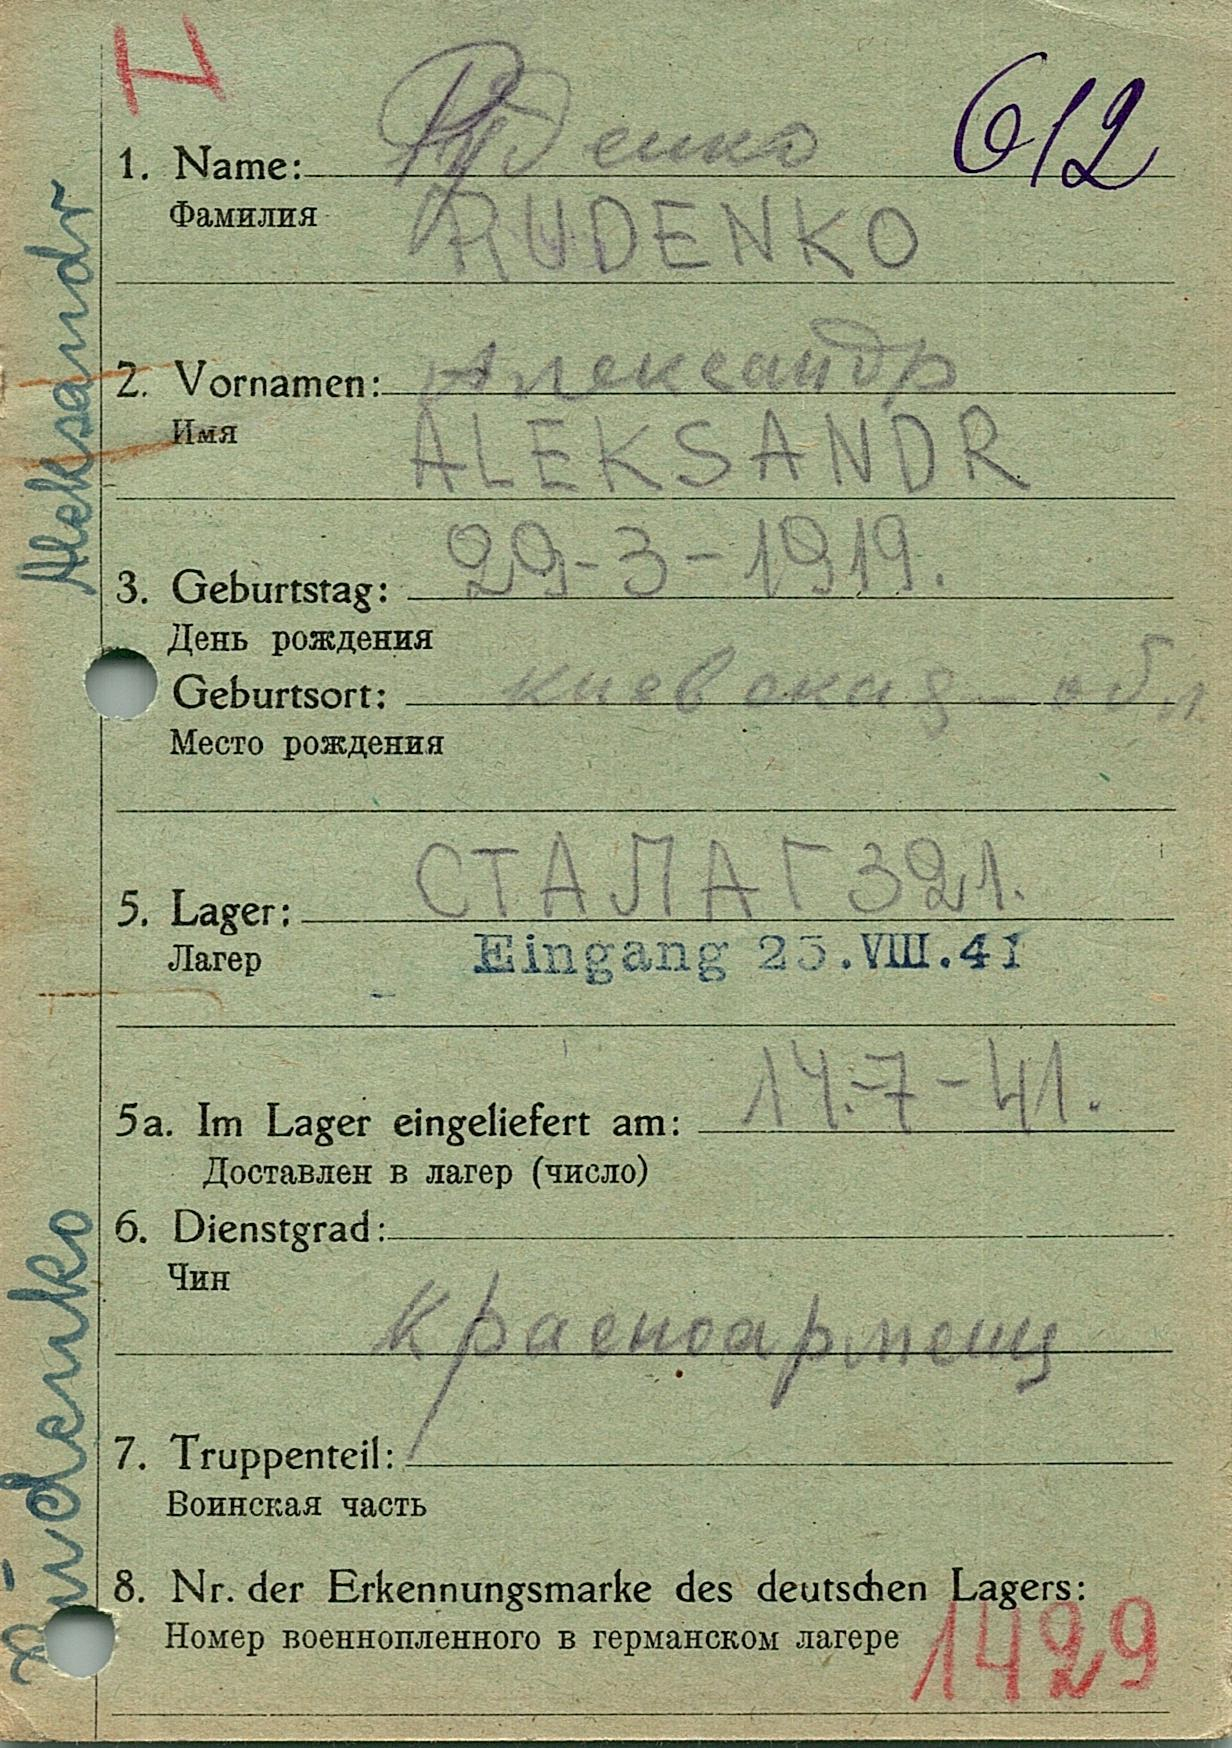 I
612
1. Name: Руденко
Фамилия
RUDENKO
2. Vornamen: Александр
Имя
ALEKSANDR
29-3-1919.
3. Geburtstag:
День рождения
Geburtsort: киевская обл
Место рождения
5. Lager: СТАЛАГ 321.
Лагер
Eingang 25.VIII.41
5a. Im Lager eingeliefert am: 14.-7-41.
Доставлен в лагер (число)
6. Dienstgrad:
Чин
Красноармеец
7. Truppenteil:
Воинская часть
8. Nr. der Erkennungsmarke des deutschen Lagers:
Номер военнопленного в германском лагере
1429
Rudenko Aleksandr